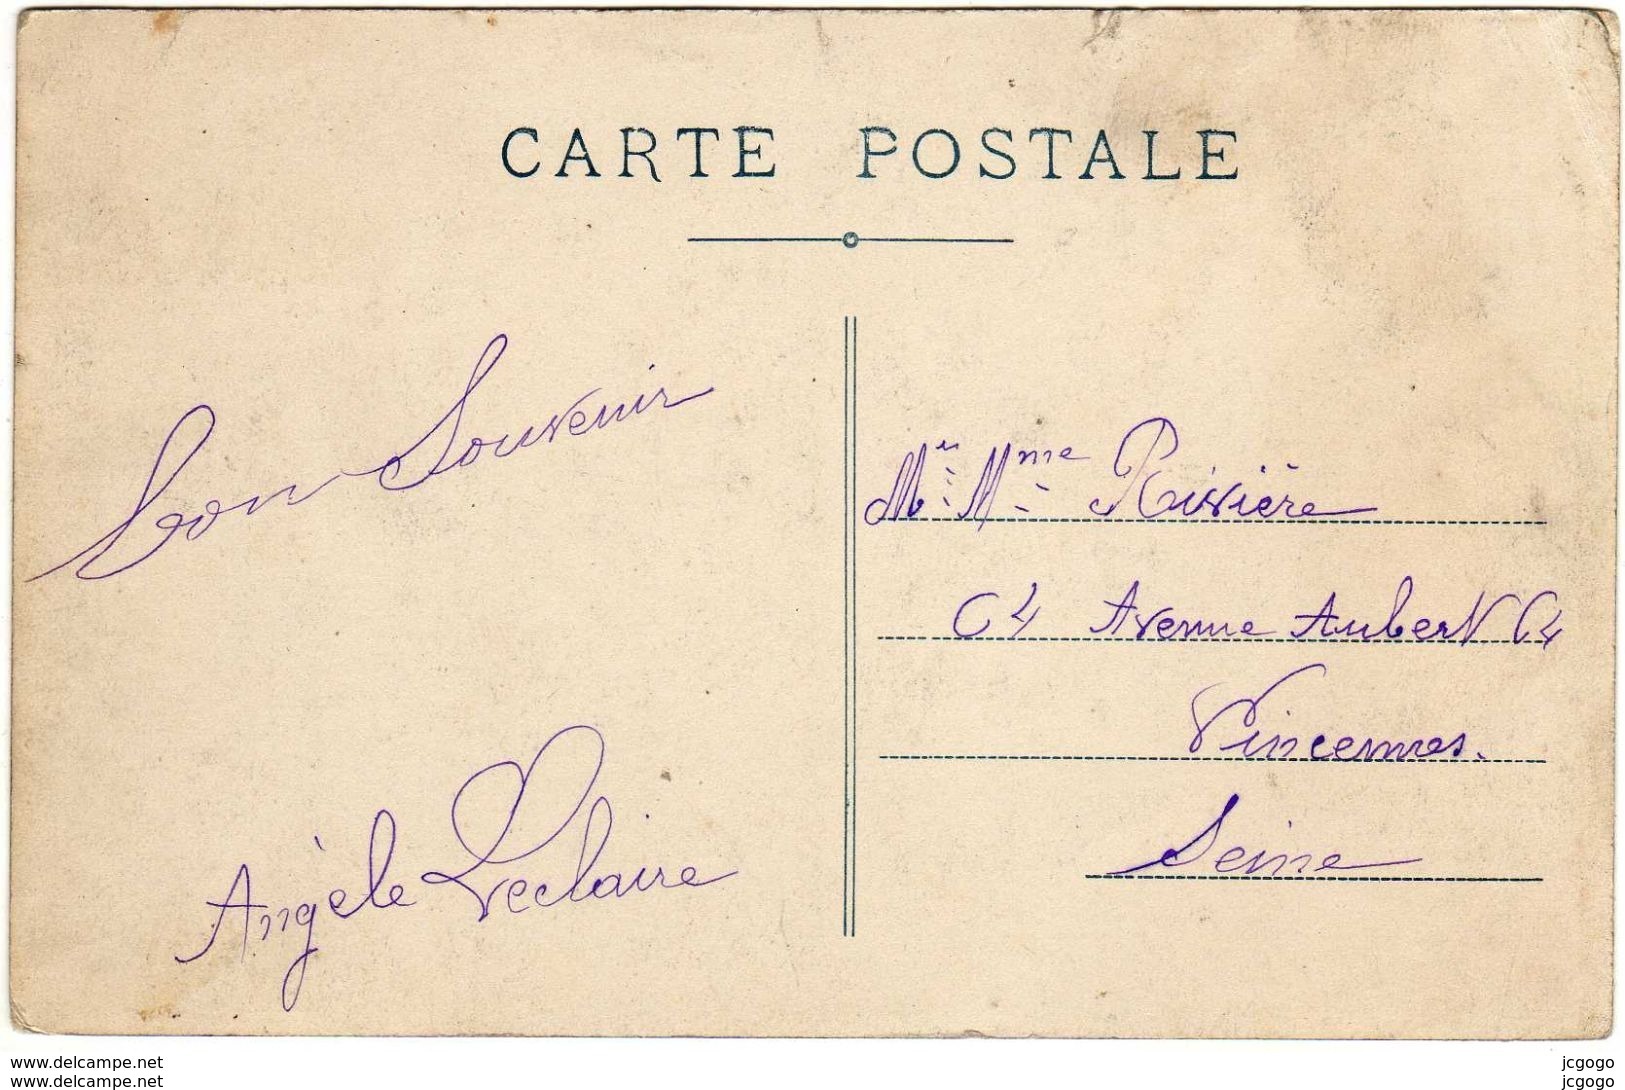 CARTE POSTALE
Bon Souvenir
Angèle Leclaire
Mr Mme Rivière
64 Avenue Aubert 64
Vincennes.
Seine
www.delcampe.net
www.delcampe.net
jcgogo
jcgogo